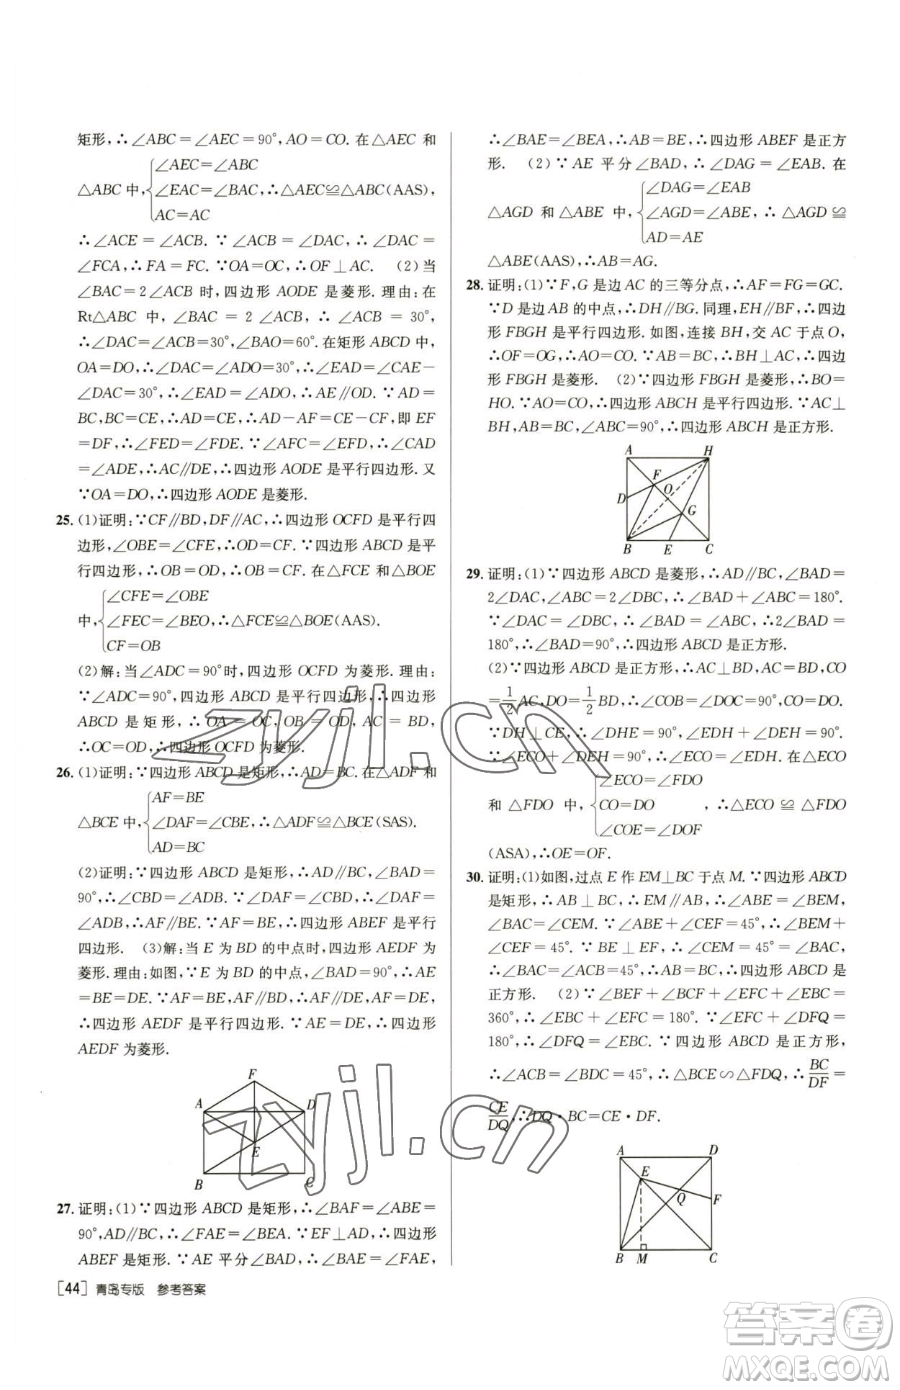 矩形,∴∠ABC=∠AEC=90°,AO=CO.在△AEC 和
△ABC中,{∠AEC=∠ABC
∠EAC=∠BAC,∴△AEC≌△ABC(AAS),
AC=AC
∴∠ACE=∠ACB.∵∠ACB=∠DAC,∴∠DAC=
∠FCA,∴FA=FC.∵OA=OC,∴OF⊥AC. (2)当
∠BAC=2∠ACB时,四边形AODE是菱形.理由:在
Rt△ABC中,∠BAC=2∠ACB,∴∠ACB=30°,
∴∠DAC=∠CAE=30°,∠BAO=60°.在矩形ABCD中,
OA=OD,∴∠DAC=∠ADO=30°,∴∠EAD=∠CAE-
∠DAC=30°,∴∠EAD=∠ADO,∴AE∥OD.∵AD=
BC,BC=CE,∴AD=CE,∴AD-AF=CE-CF,即EF
=DF,∴∠FED=∠FDE.∵∠AFC=∠EFD,∴∠CAD
=∠ADE,∴AC∥DE,∴四边形AODE是平行四边形.又
∵OA=DO,∴四边形AODE是菱形.
25. (1)证明:∵CF∥BD,DF∥AC,∴四边形OCFD是平行四
边形,∠OBE=∠CFE,∴OD=CF.∵四边形ABCD是
平行四边形,∴OB=OD,∴OB=CF.在△FCE和△BOE
中,{∠CFE=∠OBE
∠FEC=∠BEO,∴△FCE≌△BOE(AAS).
CF=OB
(2)解:当∠ADC=90°时,四边形OCFD为菱形.理由:
∵∠ADC=90°,四边形ABCD是平行四边形,∴四边形
ABCD是矩形,∴OA=OC,OB=OD,AC=BD,
∴OC=OD,∴四边形OCFD为菱形.
26. (1)证明:∵四边形ABCD是矩形,∴AD=BC.在△ADF和
△BCE中,{AF=BE
∠DAF=∠CBE,∴△ADF≌△BCE(SAS).
AD=BC
(2)证明:∵四边形ABCD是矩形,∴AD∥BC,∠BAD=
90°,∴∠CBD=∠ADB.∵∠DAF=∠CBE,∴∠DAF=∠
ADB,∴AF∥BE.∵AF=BE,∴四边形ABEF是平行
四边形. (3)解:当E为BD的中点时,四边形AEDF为
菱形.理由:如图,∵E为BD的中点,∠BAD=90°,∴AE
=BE=DE.∵AF=BE,AF∥BE,∴AF=DE,∴四边
形AEDF是平行四边形.∵AE=DE,∴平行四边形
AEDF为菱形.
F
A D
E
B C
27. 证明:(1)∵四边形ABCD是矩形,∴∠BAF=∠ABE=
90°,AD∥BC,∴∠FAE=∠BEA.∵EF⊥AD,∴四边形
ABEF是矩形.∵AE平分∠BAD,∴∠BAE=∠FAE,
[44] 青岛专版 参考答案
∴∠BAE=∠BEA,∴AB=BE,∴四边形ABEF是正方
形. (2)∵AE平分∠BAD,∴∠DAG=∠EAB.在
△AGD和△ABE中,{∠DAG=∠EAB
∠AGD=∠ABE,∴△AGD≌
AD=AE
△ABE(AAS),∴AB=AG.
28. 证明:(1)∵F,G是边AC的三等分点,∴AF=FG=GC.
∵D是边AB的中点,∴DH∥BG.同理,EH∥BF,∴四边
形FBGH是平行四边形.如图,连接BH,交AC于点O,
∴OF=OG,∴AO=CO.∵AB=BC,∴BH⊥AC,∴四边
形FBGH是菱形. (2)∵四边形FBGH是菱形,∴BO=
HO.∵AO=CO,∴四边形ABCH是平行四边形.∵AC⊥
BH,AB=BC,∠ABC=90°,∴四边形ABCH是正方形.
A H
F
D O
G
B E C
29. 证明:(1)∵四边形ABCD是菱形,∴AD∥BC,∠BAD=
2∠DAC,∠ABC=2∠DBC,∴∠BAD+∠ABC=180°.
∵∠DAC=∠DBC,∴∠BAD=∠ABC,∴2∠BAD=
180°,∴∠BAD=90°,∴四边形ABCD是正方形.
(2)∵四边形ABCD是正方形,∴AC⊥BD,AC=BD,CO
=1/2AC,DO=1/2BD,∴∠COB=∠DOC=90°,CO=DO.
∵DH⊥CE,∴∠DHE=90°,∴∠EDH+∠DEH=90°.
∵∠ECO+∠DEH=90°,∴∠ECO=∠EDH.在△ECO
和△FDO中,{∠ECO=∠FDO
CO=DO ,∴△ECO≌△FDO
∠COE=∠DOF
(ASA),∴OE=OF.
30. 证明:(1)如图,过点E作EM⊥BC于点M.∵四边形ABCD
是矩形,∴AB⊥BC,∴EM∥AB,∴∠ABE=∠BEM,
∠BAC=∠CEM.∵∠ABE+∠CEF=45°,∴∠BEM+
∠CEF=45°.∵BE⊥EF,∴∠CEM=45°=∠BAC,
∴∠BAC=∠ACB=45°,∴AB=BC,∴四边形ABCD是
正方形. (2)∵∠BEF+∠BCF+∠EFC+∠EBC=
360°,∴∠EBC+∠EFC=180°.∵∠EFC+∠DFQ=
180°,∴∠DFQ=∠EBC.∵四边形ABCD是正方形,
∴∠ACB=∠BDC=45°,∴△BCE∽△FDQ,∴BC/DF=
CE/DQ,∴DQ·BC=CE·DF.
A D
E
Q
F
B M C
zyjl.cn
zyjl.cn
答案圈
MXQE.COM